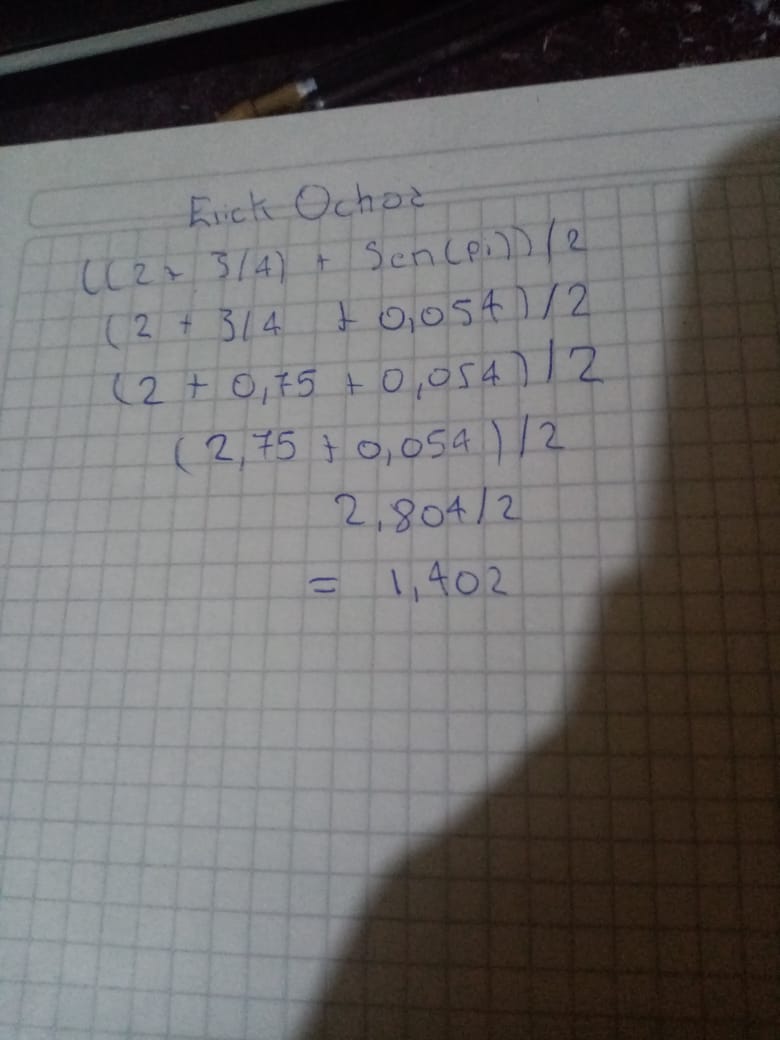 Erick Ochoa
((2 + 3/4) + Sen(pi))/2
(2 + 3/4 + 0,054)/2
(2 + 0,75 + 0,054)/2
(2,75 + 0,054)/2
2,804/2
= 1,402